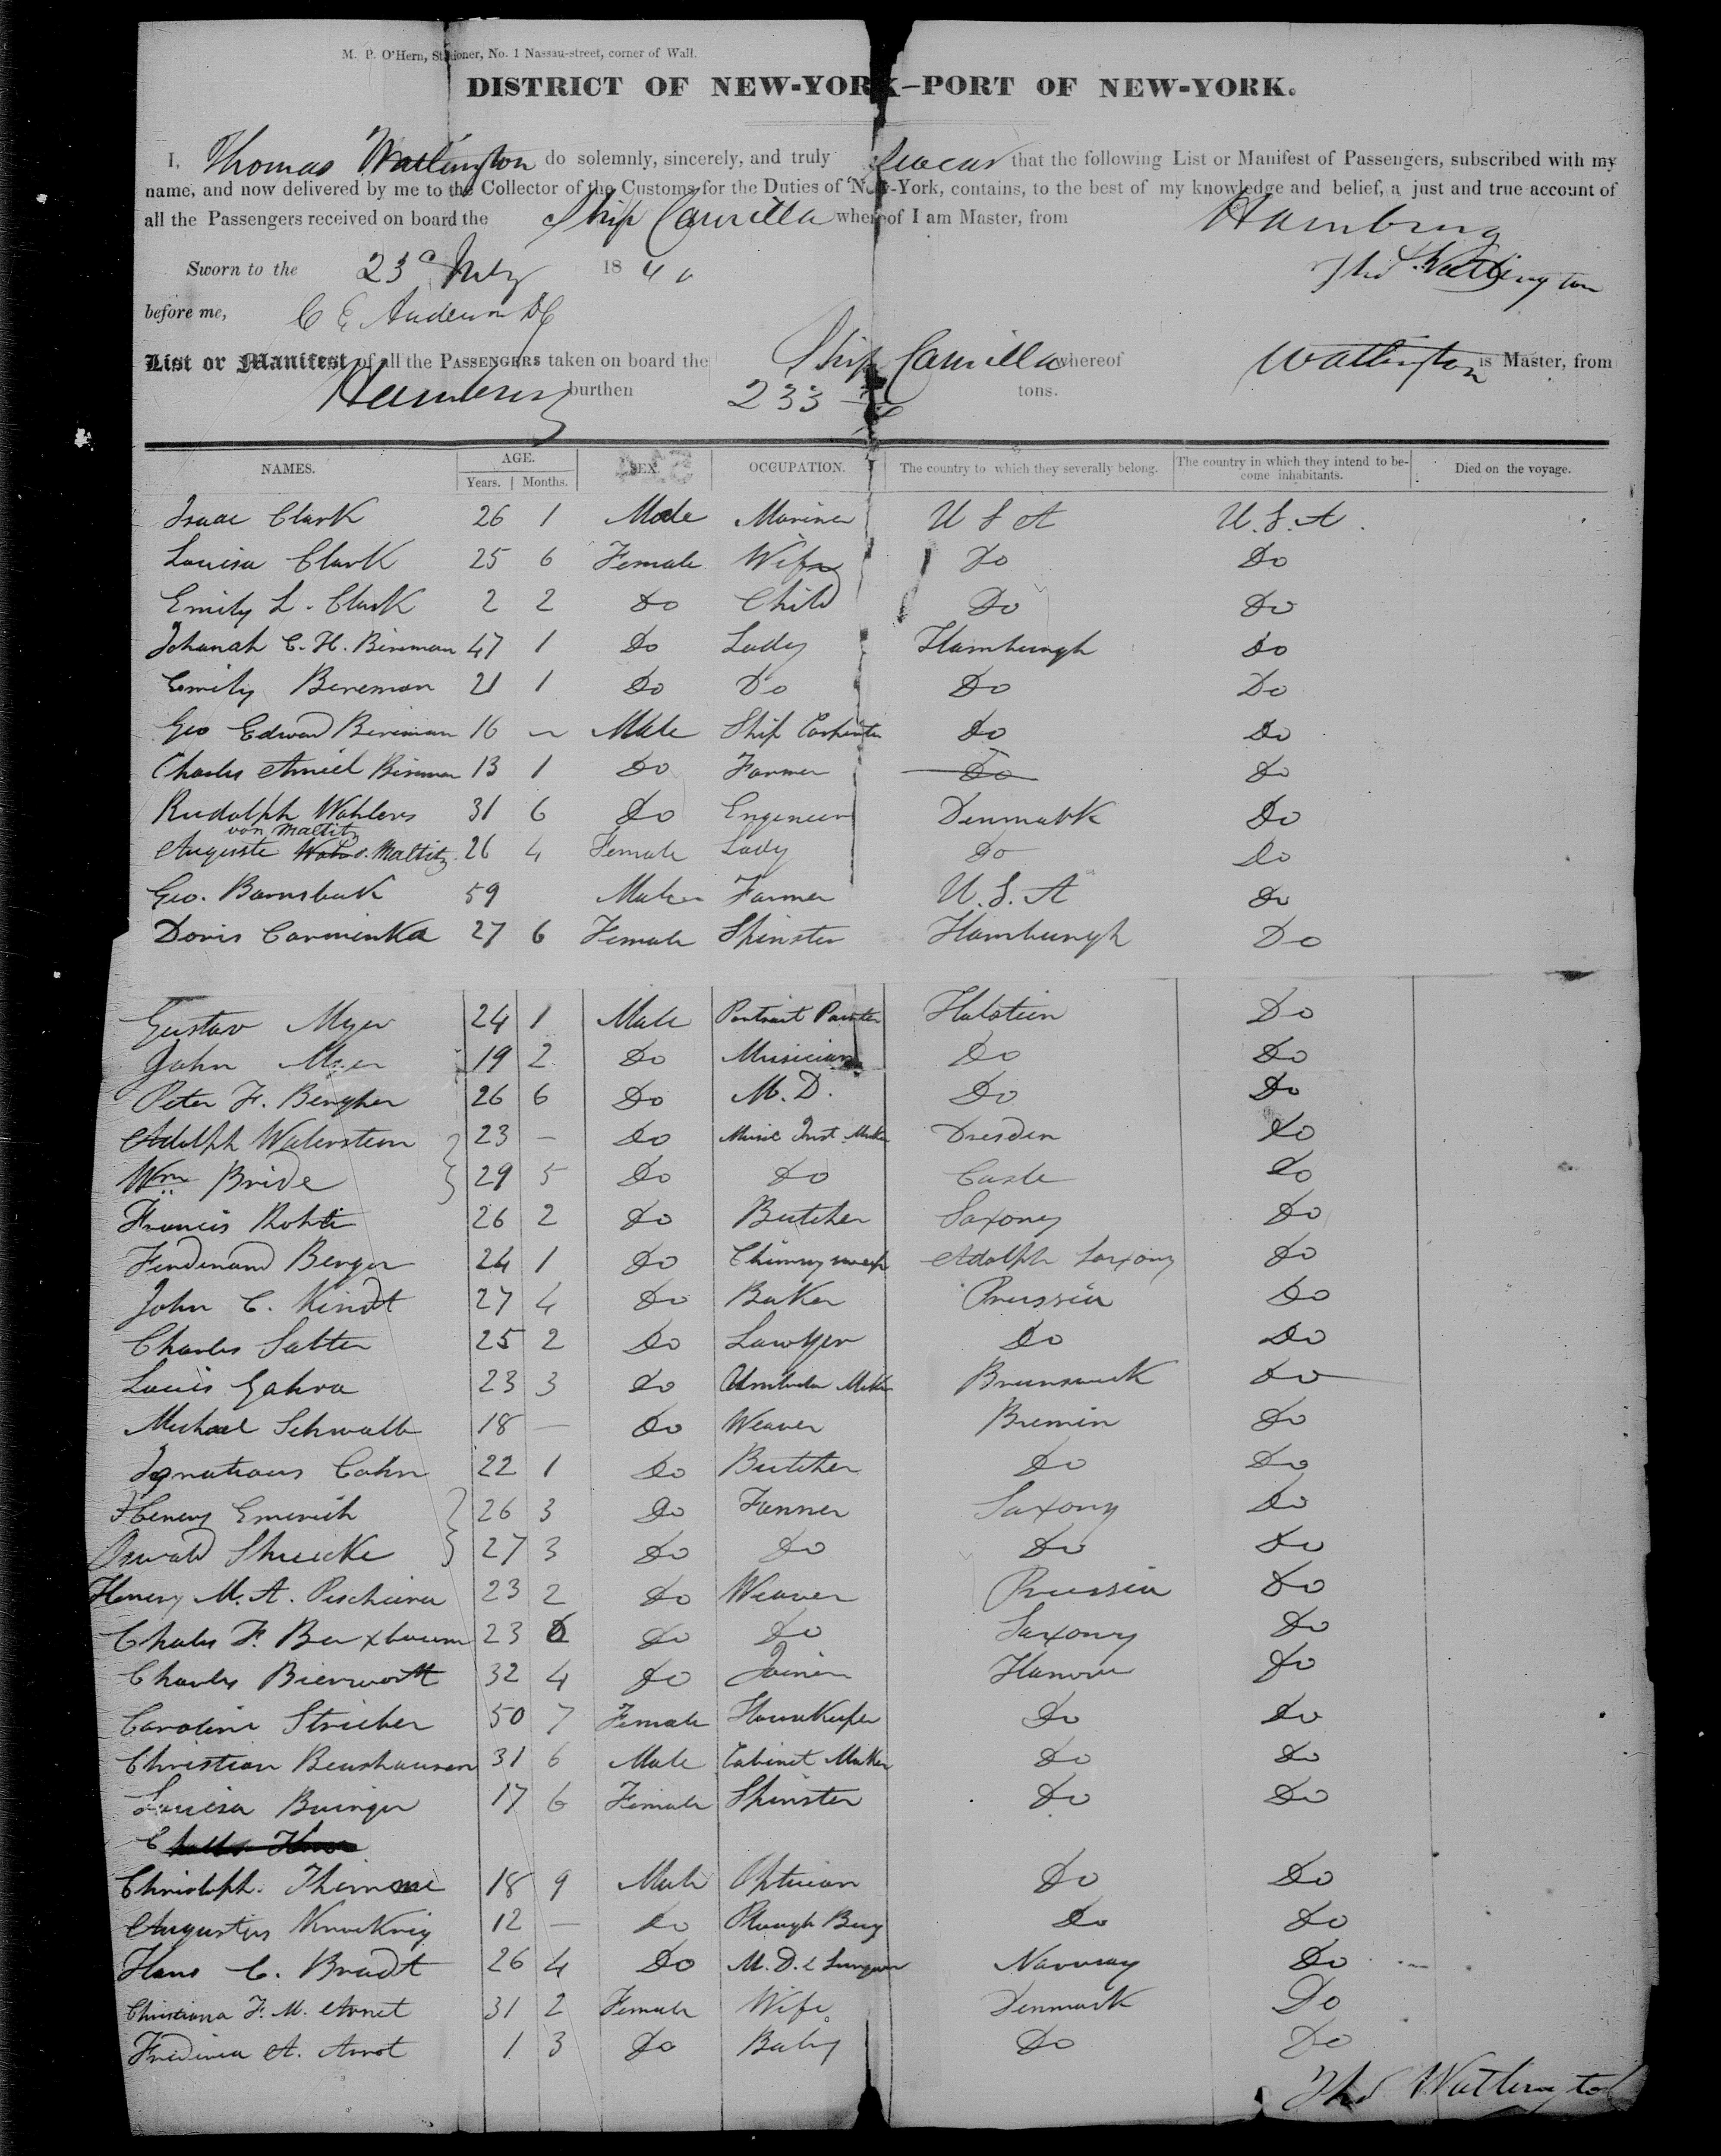 M. P. O'Hern, Stationer, No. 1 Nassau-street, corner of Wall.
DISTRICT OF NEW-YORK—PORT OF NEW-YORK.
I, Thomas Watlington do solemnly, sincerely, and truly swear that the following List or Manifest of Passengers, subscribed with my
name, and now delivered by me to the Collector of the Customs for the Duties of New-York, contains, to the best of my knowledge and belief, a just and true account of
all the Passengers received on board the Ship Camilla whereof I am Master, from Hamburg
Sworn to the 23d 184 Thos Watlington
before me, C E Anderson DC
List or Manifest of all the PASSENGERS taken on board the Ship Camilla whereof Watlington is Master, from
Hamburg burthen 233 tons.
NAMES. AGE. SEX. OCCUPATION. The country to which they severally belong. The country in which they intend to be- Died on the voyage.
Years. Months. come inhabitants.
Isaac Clark 26 1 Male Mariner U S A U.S.A.
Louisa Clark 25 6 Female Wife Do Do
Emily L. Clark 2 2 Do Child Do Do
Johanah C. H. Bireman 47 1 Do Lady Hamburgh Do
Emily Bireman 21 1 Do Do Do Do
Geo Edward Bireman 16 ~ Male Ship Carpenter Do Do
Charles Amiel Bireman 13 1 Do Farmer Do Do
Rudolph Wahlers 31 6 Do Engineer Denmark Do
von Maltitz
Auguste v. Maltitz 26 4 Female Lady Do Do
Geo. Barnsback 59 Male Farmer U.S.A Do
Doris Carmienka 27 6 Female Spinster Hamburgh Do
Gustav Myer 24 1 Male Portrait Painter Holstien Do
John 19 2 Do Musician Do Do
Peter F. Bengher 26 6 Do M.D. Do Do
Adolph Walerstein 23 — Do Music Inst. Maker Dresden Do
Wm Bride 29 5 Do Do Casle Do
Francis Rohte 26 2 Do Butcher Saxony Do
Ferdenand Berger 24 1 Do Chimney sweep Adolph Saxony Do
John C. Kindt 27 4 Do Baker Prussia Do
Charles Satter 25 2 Do Lawyer Do Do
Louis Gahra 23 3 Do Umbrela Maker Brunswick Do
Michael Schwalb 18 — Do Weaver Bremin Do
Ignatious Cohn 22 1 Do Butcher Do Do
Henery Emerich 26 3 Do Saxony Do
Oswald 27 3 Do Do Do Do
Henery M. A. 23 2 Do Weaver Prussia Do
Charles F. Buxbaum 23 Do Do Saxony Do
Charles Bierworth 32 4 Do Joiner Hanover Do
Caroline Strieber 50 7 Female HouseKeeper Do Do
Christian Beushausen 31 6 Male Cabinet Maker Do Do
Louisa Buinger 17 6 Female Spinster Do Do
Christoph. Thimme 18 9 Male Optician Do Do
Augustus 12 — Do Plough Boy Do Do
Hans C. Bradt 26 4 Do M.D. & Surgeon Norway Do
Christiana F. M. Arnet 31 2 Female Wife Denmark Do
A. Arnot 1 3 Do Baby Do Do
Thos Watlington